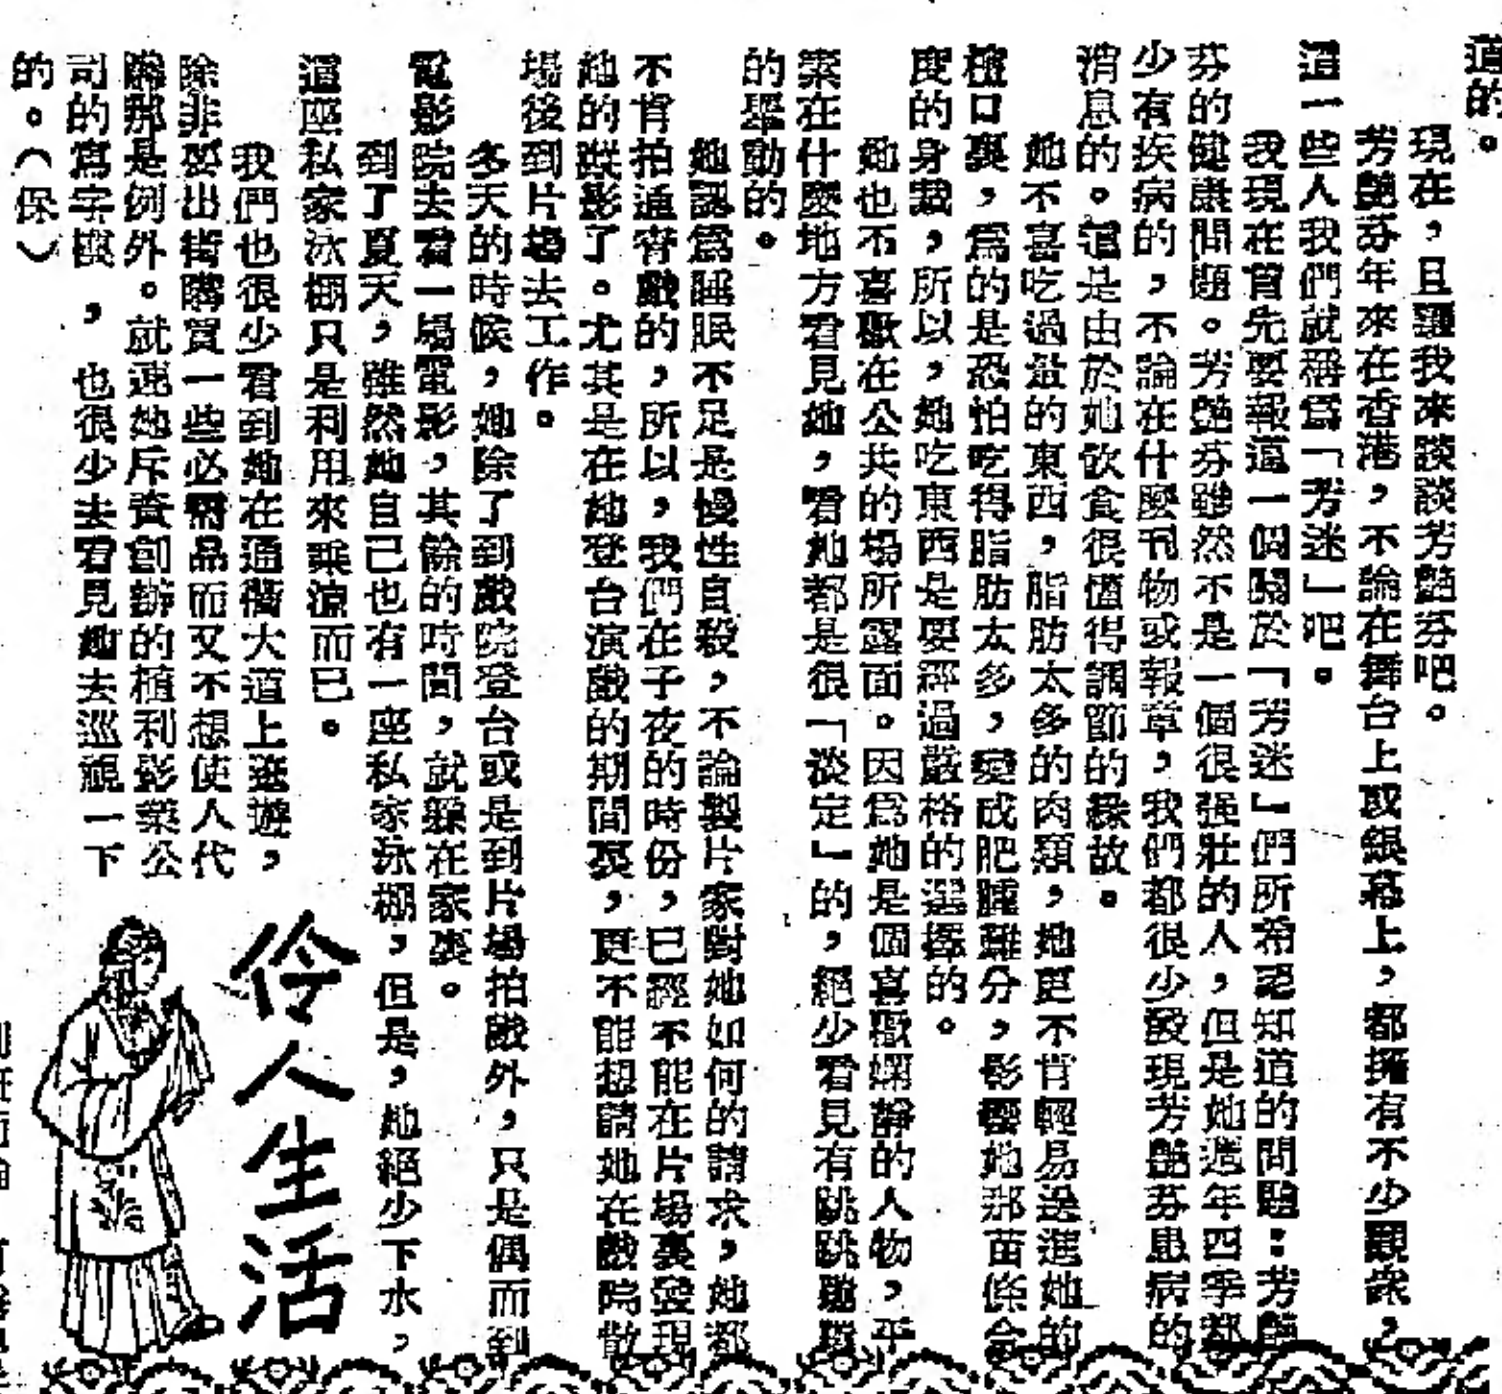 道的。
現在,且讓我來談談芳艶芬吧。
芳艶芬年來在香港,不論在舞台上或銀幕上,都擁有不少觀衆,
這一些人我們就稱爲「芳迷」吧。
我現在首先要報道一個關於「芳迷」們所希望知道的問題:芳艶
芬的健康問題。芳艶芬雖然不是一個很强壯的人,但是她週年四季都
少有疾病的,不論在什麼刊物或報章,我們都很少發現芳艶芬患病的
消息的。這是由於她飲食很懂得調節的緣故。
她不喜吃過量的東西,脂肪太多的肉類,她更不肯輕易送進她的
櫻口裏,爲的是恐怕吃得脂肪太多,變成肥腫難分,影響她那苗條合
度的身裁,所以,她吃東西是要經過嚴格的選擇的。
她也不喜歡在公共的場所露面。因爲她是個喜歡嫻靜的人物,平
素在什麼地方看見她,看她都是很「淡定」的,絕少看見有跳跳
的舉動的。
她認爲睡眠不足是慢性自殺,不論製片家對她如何的請求,她都
不肯拍通宵戲的,所以,我們在子夜的時份,已經不能在片塲裏發現
她的蹤影了。尤其是在她登台演戲的期間裏,更不能想請她在戲院散
塲後到片塲去工作。
冬天的時候,她除了到戲院登台或是到片塲拍戲外,只是偶而到
電影院去看一塲電影,其餘的時間,就躱在家裏。
到了夏天,雖然她自己也有一座私家泳棚,但是,她絕少下水,
這座私家泳棚只是利用來乘凉而已。
我們也很少看到她在通衢大道上遊,
除非要出街購買一些必需品而又不想使人代
購那是例外。就連她斥資創辦的植利影業公
司的寫字樓,也很少去看見她去巡視一下
的。(保)
伶人生活